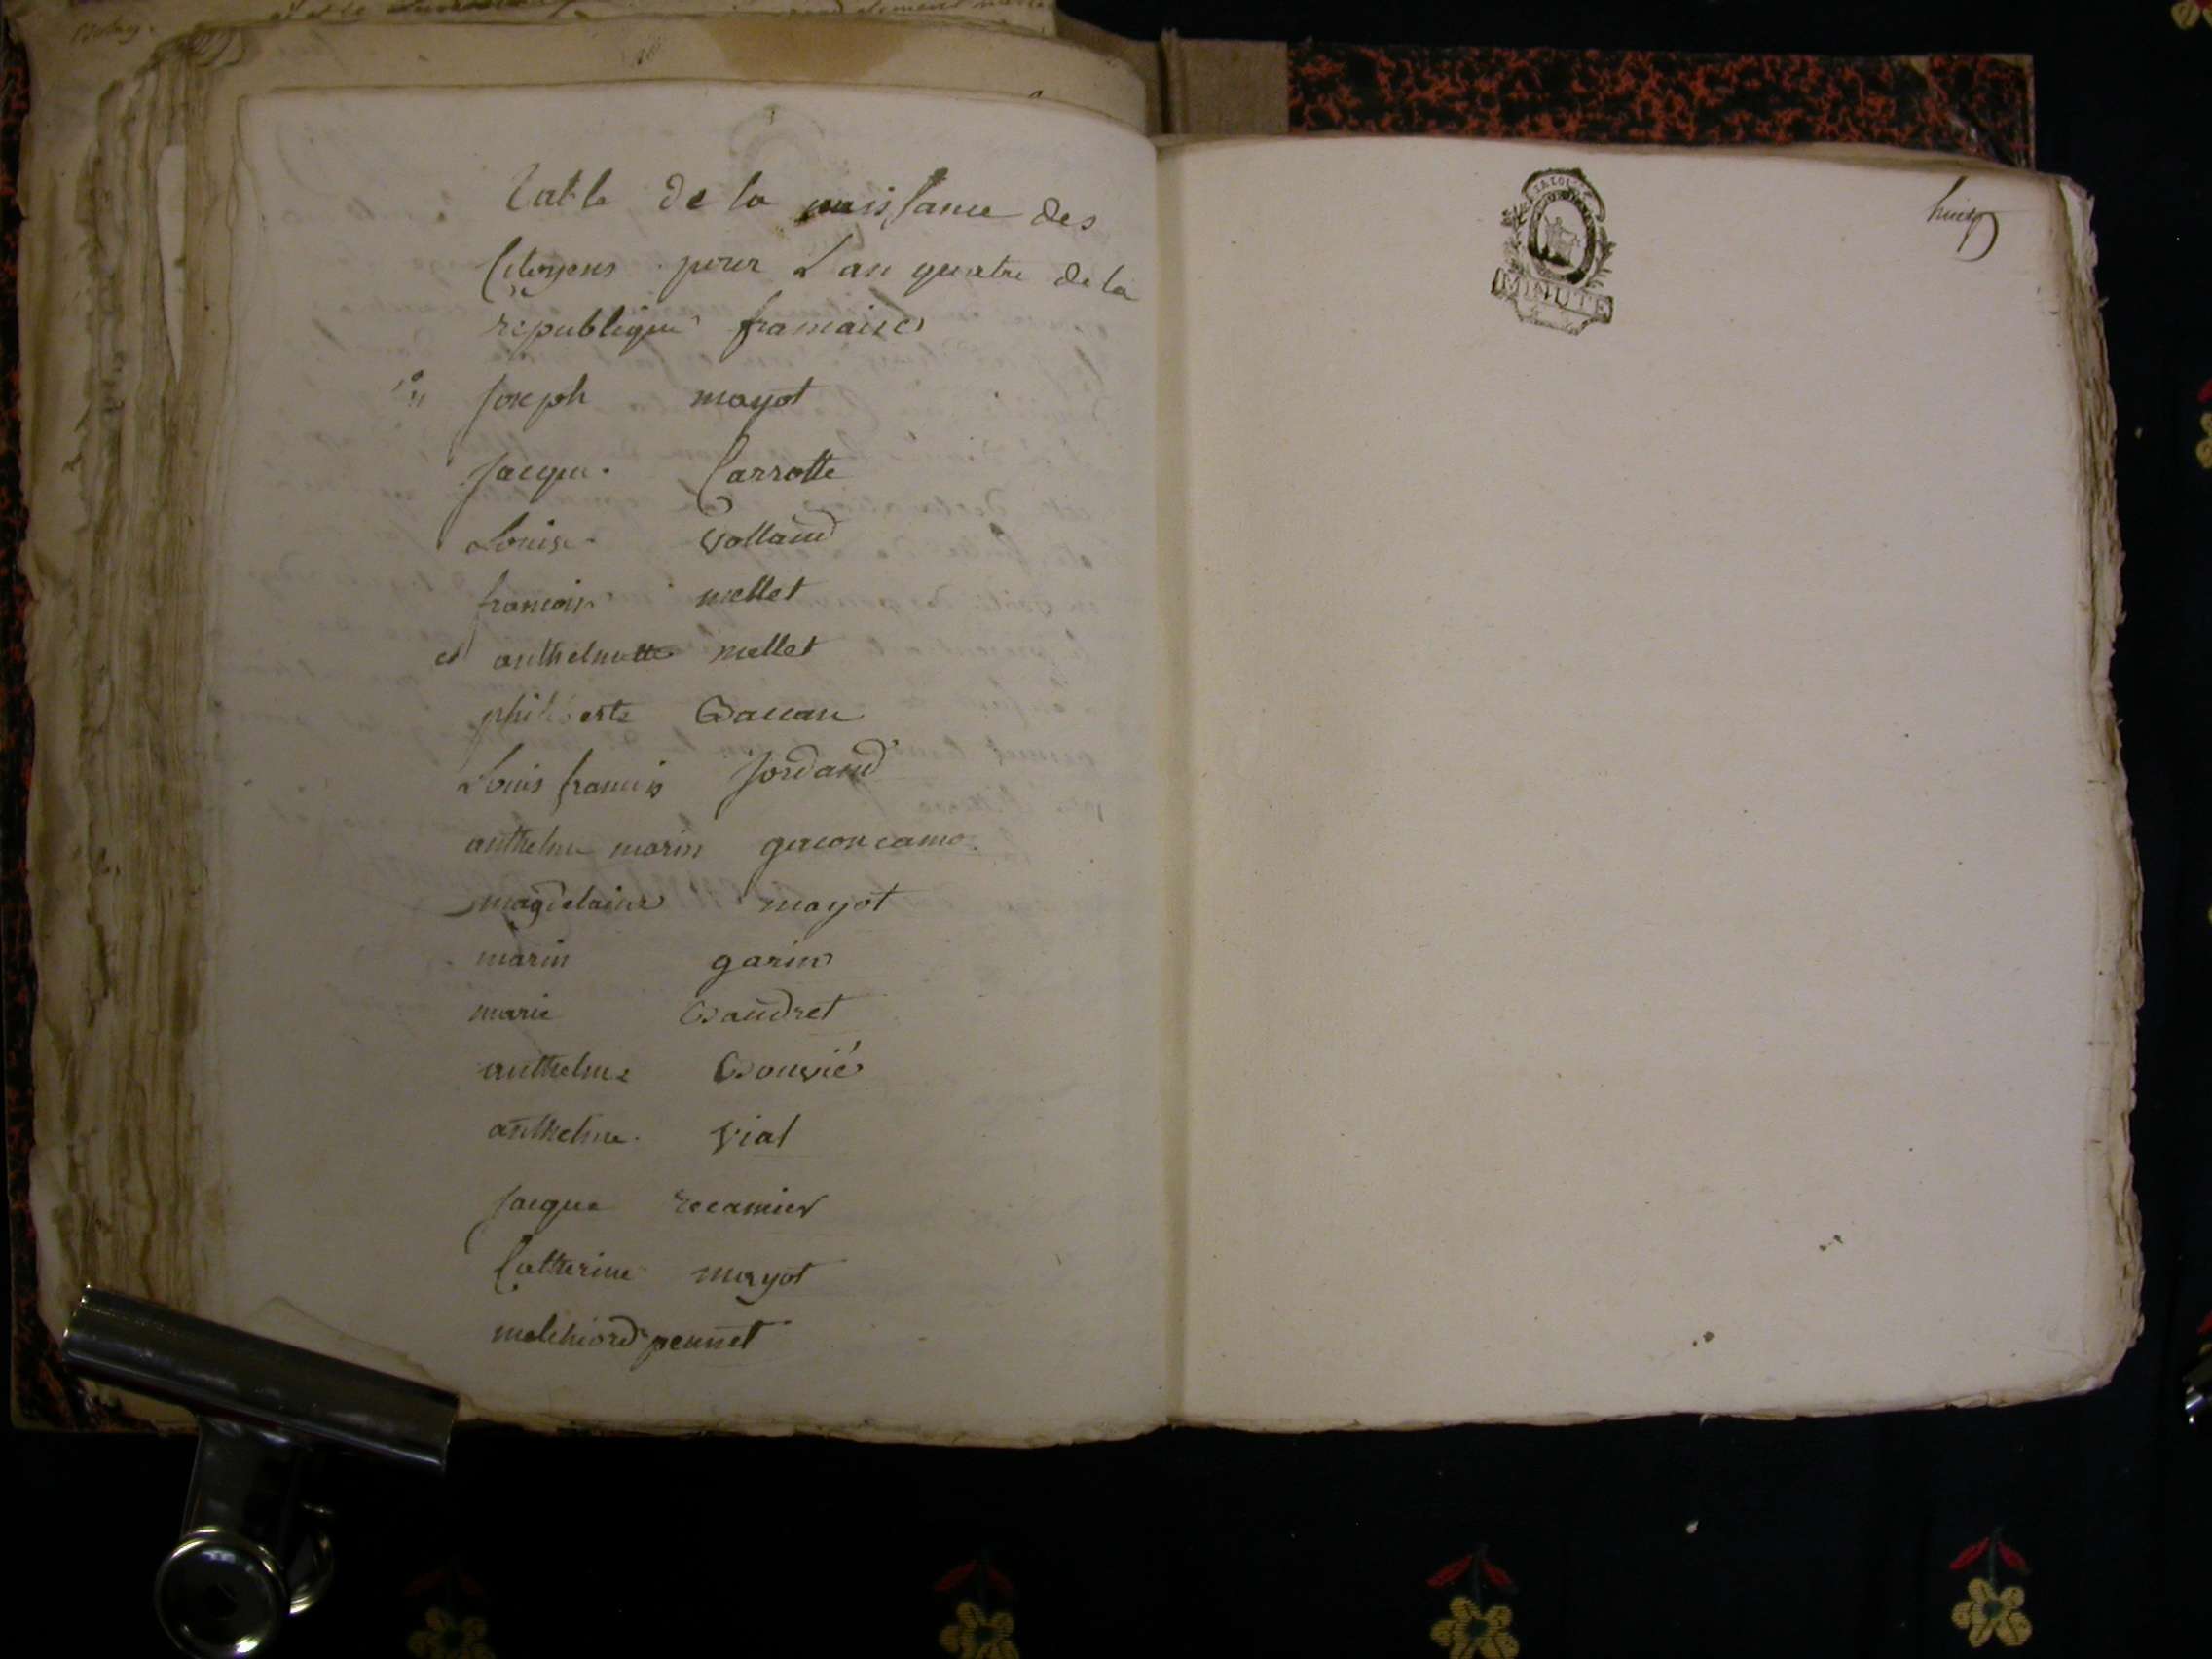 table de la naissance des
Citoyens pour L'an quatre de la
republique francaise
1o
Joseph mayot
Jacque Carrotte
Louise Volland
francois mellet
et anthelmette mellet
philiberte
Louis francis Jordand
anthelme marin gacon camo
magdelaine mayot
marin garin
marie Baudret
anthelme Bouvié
anthelme Vial
Jacque recamier
Catherine mayot
melchiord pennet
MINUTE